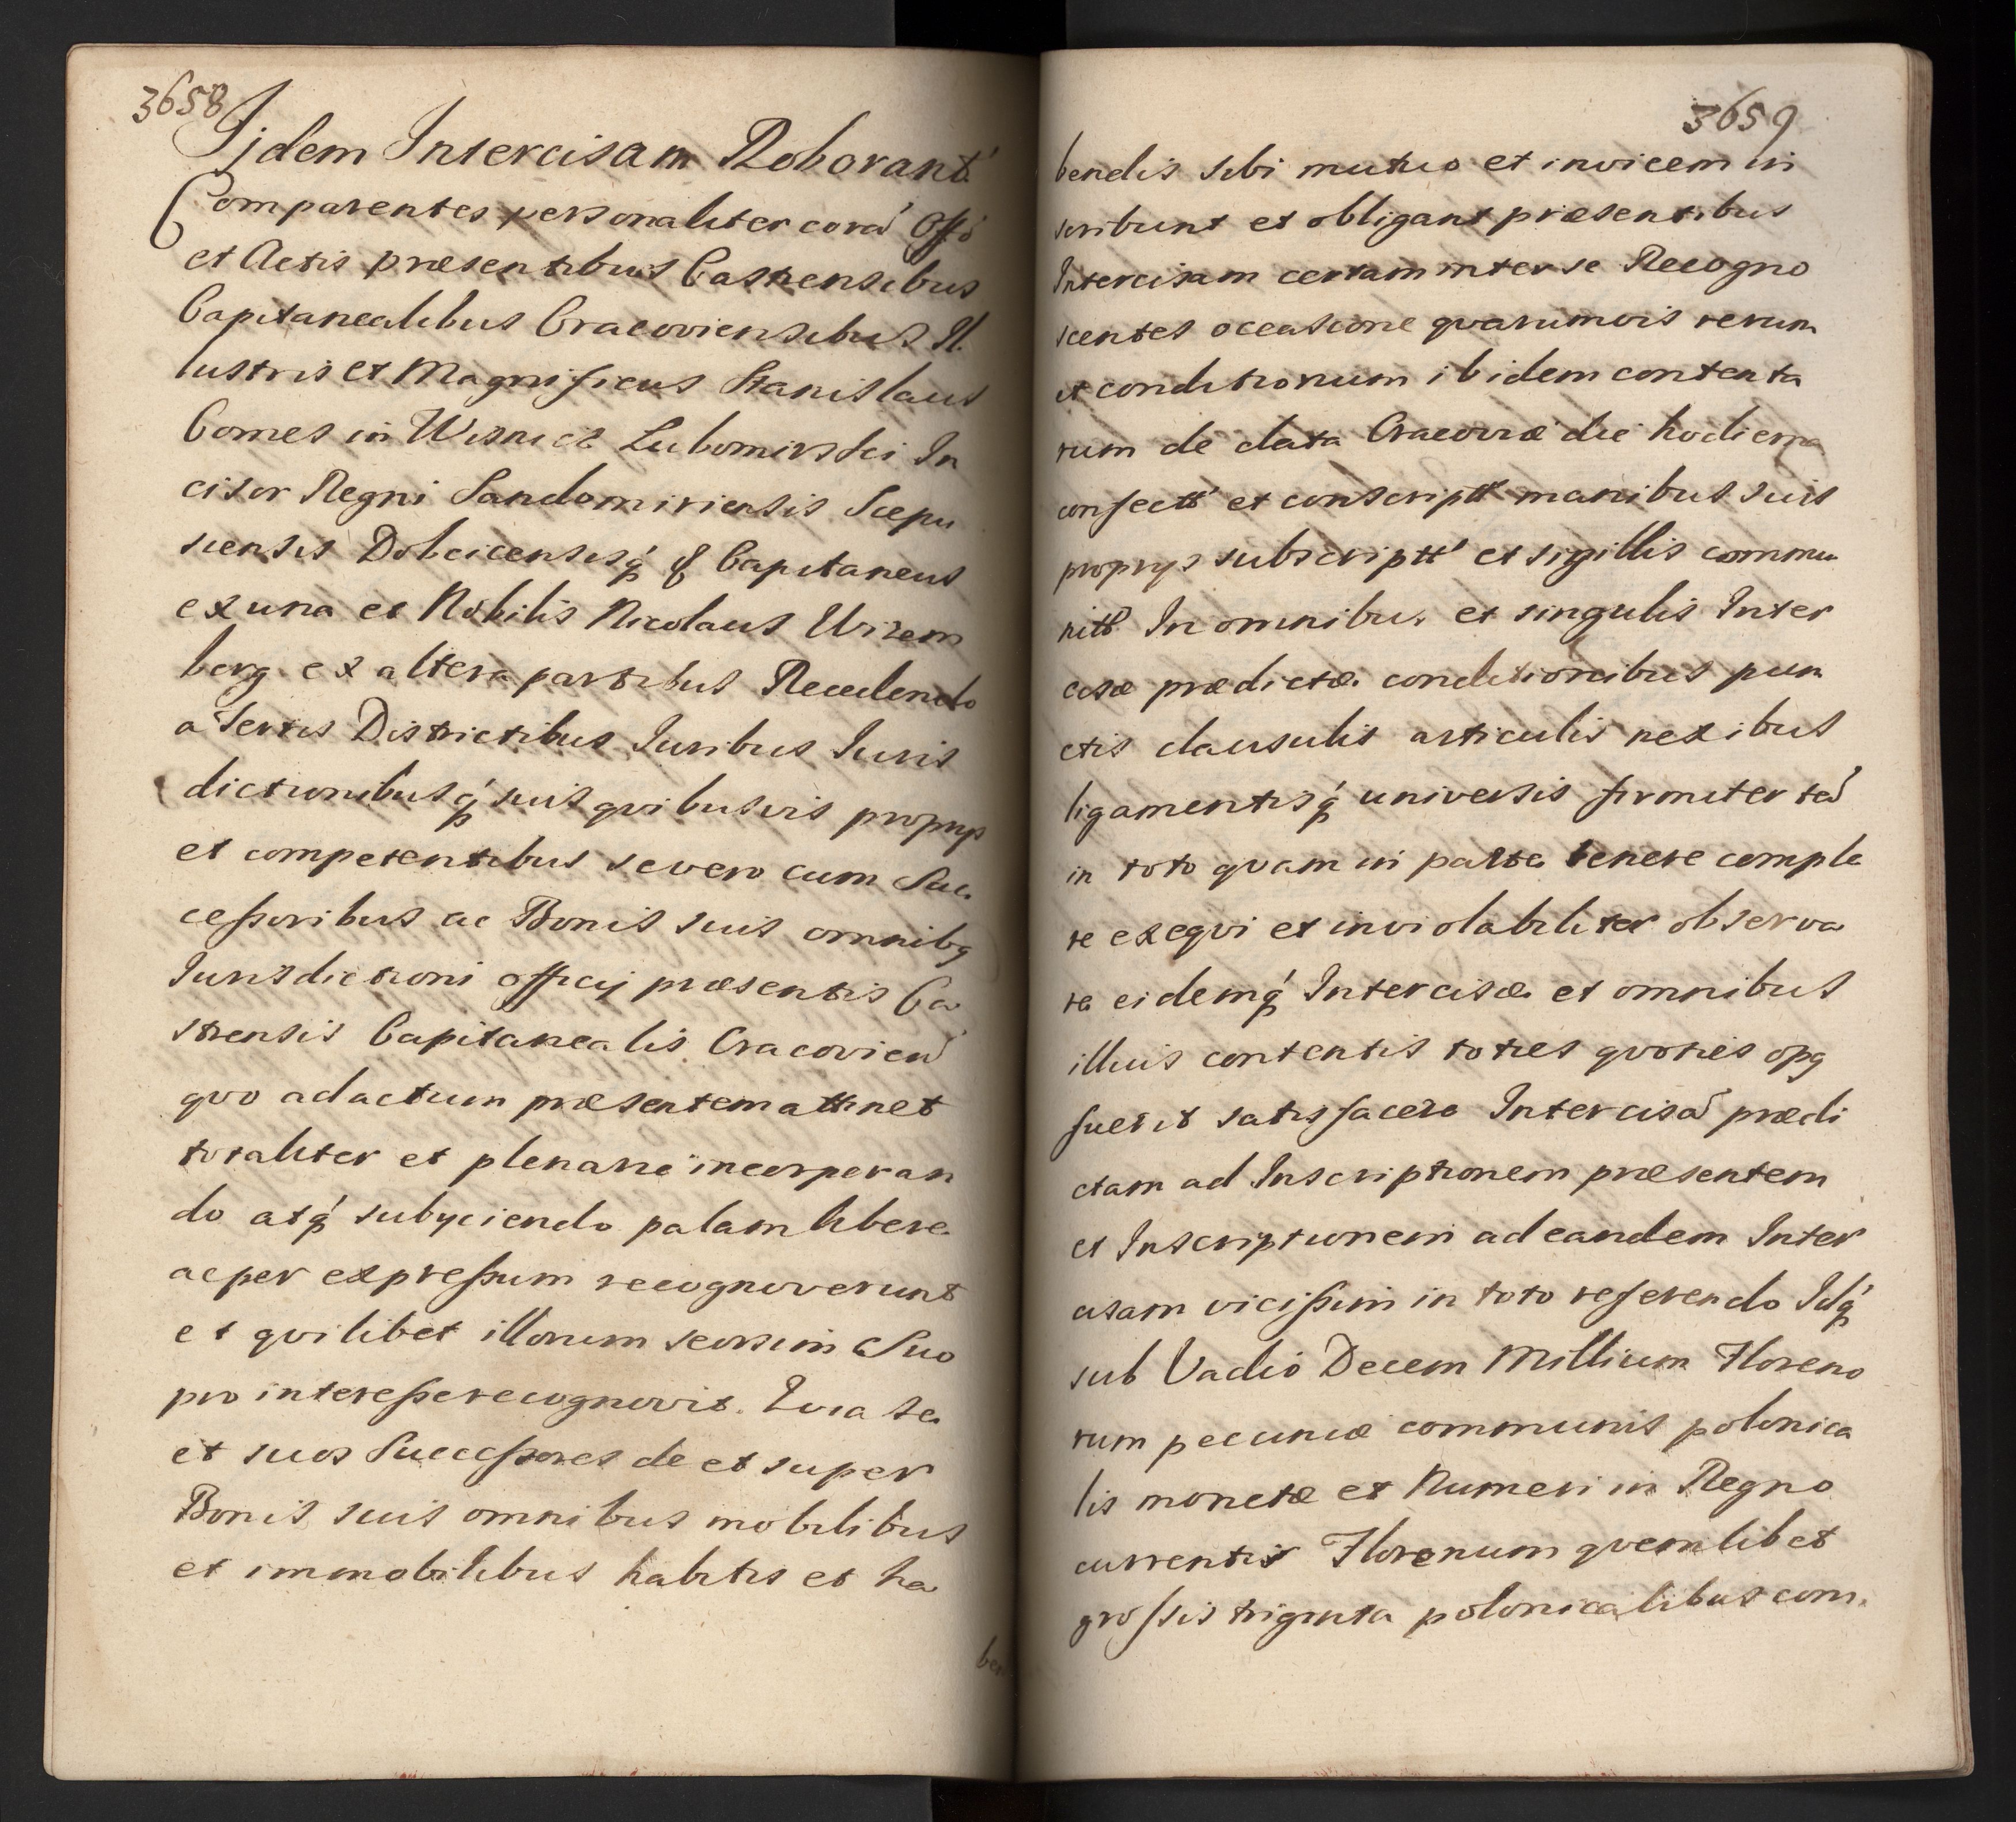 3658
Ijdem Intercisam Roborant
Comparentes personaliter corã Offõ
et Actis præsentibus Castrensibus
Capitanealibus Cracoviensibus Il
lustris et Magnificus Stanislaus
Comes in Wisnicz Lubomirski In
cisor Regni Sandomiriensis Scepu
siensis Dobcicensisq́ & Capitaneus
ex una et Nobilis Nicolaus Wirem
berg ex altera partibus Recedendo
a Terris Districtibus Iuribus Iuris
dictionibusq́ suis qvibusvis propryis
et competentibus se vero cum Suc
ceſsoribus ac Bonis suis omnibq
Iurisdictioni officij præsentis Ca
strensis Capitanealis Cracovień
qvo ad actum præsentem attinet
totaliter et plenarie incorporan
do atq́ subyciendo palam libere
ac per expreſsum recognoverunt
et qvilibet illorum seorsim Suo
pro intereſse recognovit. Qvia se
et suos Succeſsores de et super
Bonis suis omnibus mobilibus
et immobilibus habitis et ha
ben
3659
bendis sibi mutuo et invicem in
scribunt et obligant præsentibus
Intercisam certam inter se Recogno
scentes occasione qvarumvis rerum
et conditionum ibidem contenta
rum de data Cracoviæ die hodierna
confectt́ et conscriptt́ manibus suis
proprys subscriptt́ et sigillis commu
nitt́ In omnibus et singulis Inter
cisæ prædictæ conditionibus pun
ctis clausulis articulis nexibus
ligamentisq́ universis firmiter tã
in toto qvam in parte tenere comple
re exeqvi et inviolabiliter observa
re eidemq́ Intercisæ et omnibus
illius contentis toties qvoties opq
fuerit satisfacere Intercisã prædi
ctam ad Inscriptionem præsentem
et Inscriptionem ad eandem Inter
cisam viciſsim in toto referendo Idq́
sub Vadio Decem Millium Floreno
rum pecuniæ communis polonica
lis monetæ et Numeri in Regno
currentis Florenum qvemlibet
groſsis triginta polonicalibus com